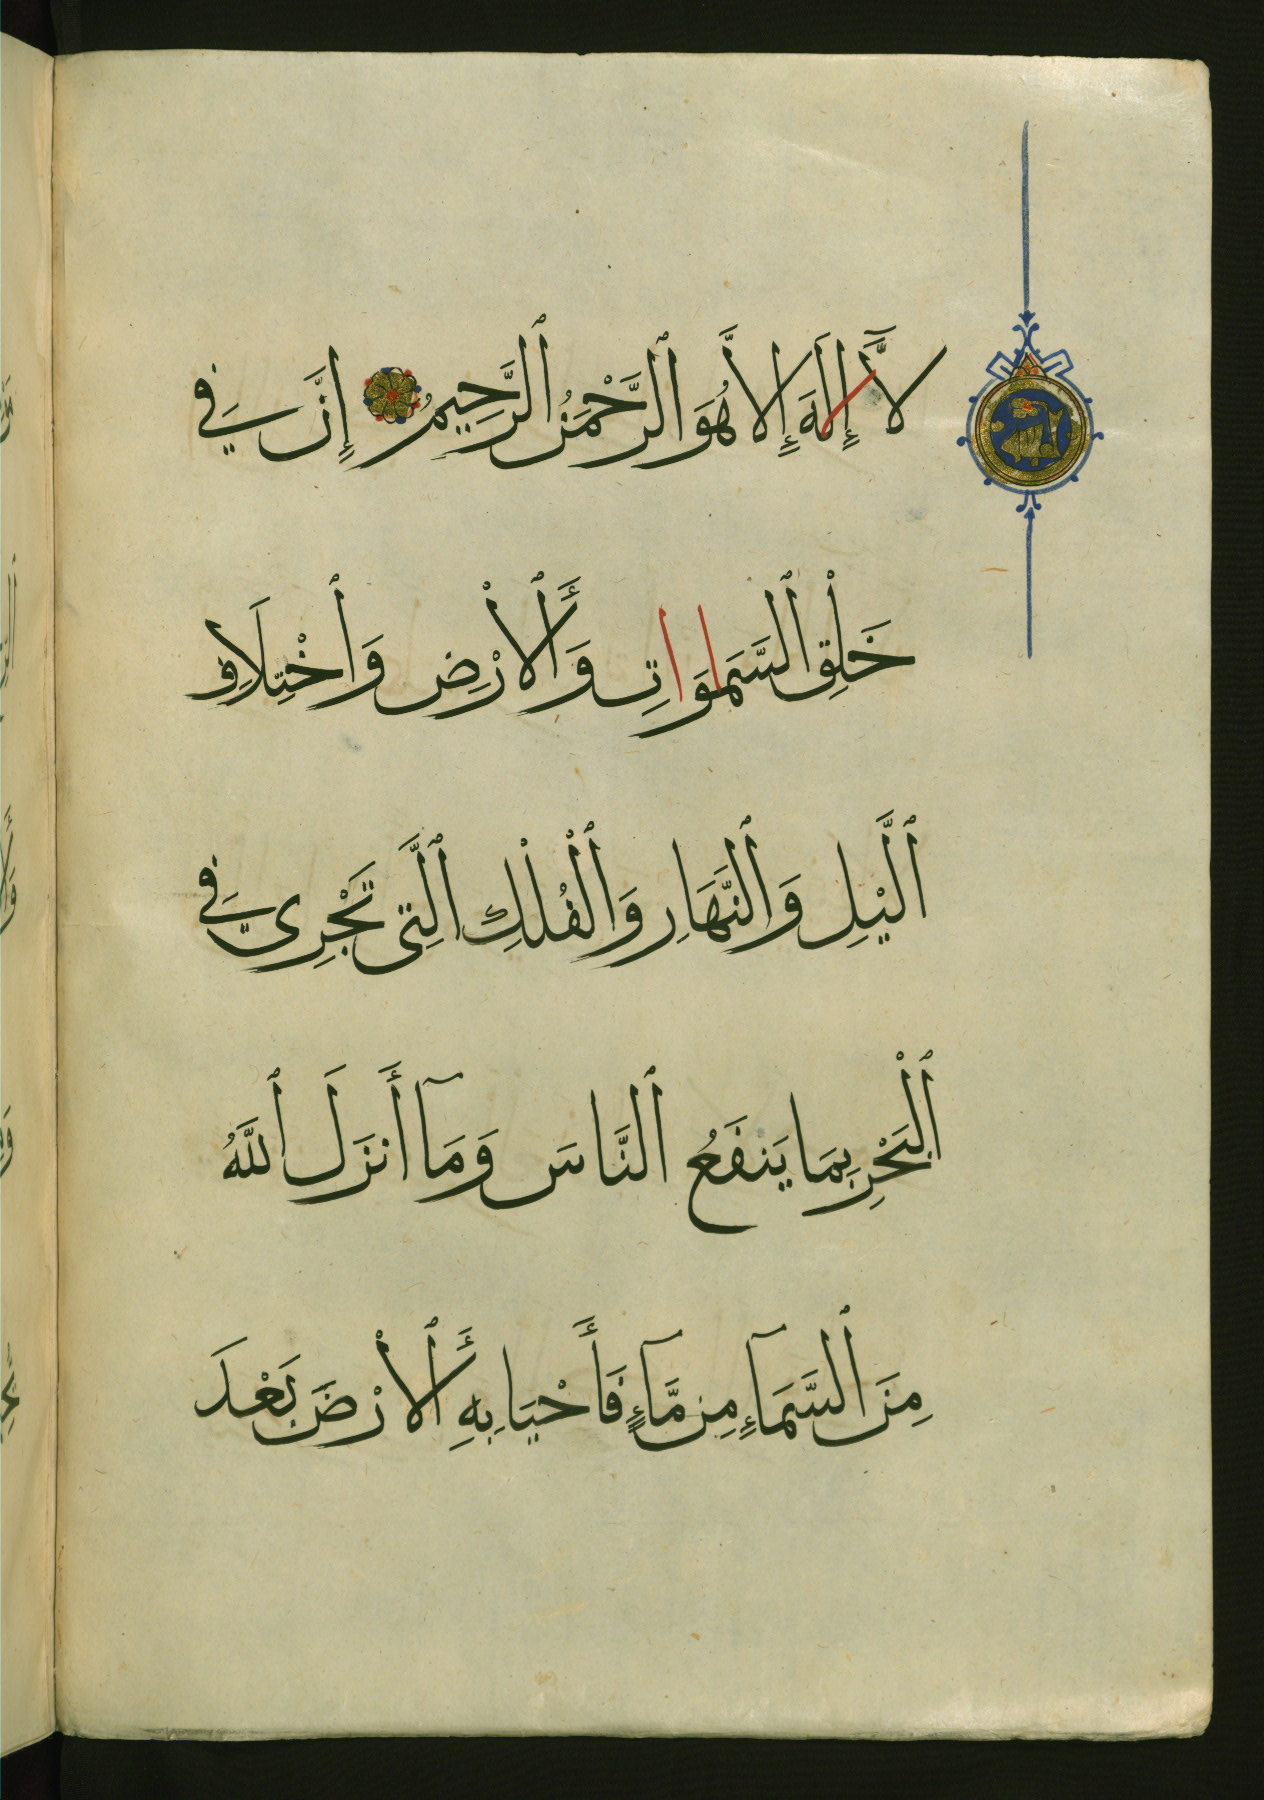 لَّا إِلَٰهَ إِلَّا هُوَ ٱلرَّحْمَٰنُ ٱلرَّحِيمُ إِنَّ فِي
خَلْقِ ٱلسَّمَاوَاتِ وَٱلْأَرْضِ وَٱخْتِلَافِ
ٱلَّيْلِ وَٱلنَّهَارِ وَٱلْفُلْكِ ٱلَّتِى تَجْرِى فِي
ٱلْبَحْرِ بِمَا يَنفَعُ ٱلنَّاسَ وَمَآ أَنزَلَ ٱللَّهُ
مِنَ ٱلسَّمَآءِ مِن مَّآءٍ فَأَحْيَا بِهِ ٱلْأَرْضَ بَعْدَ